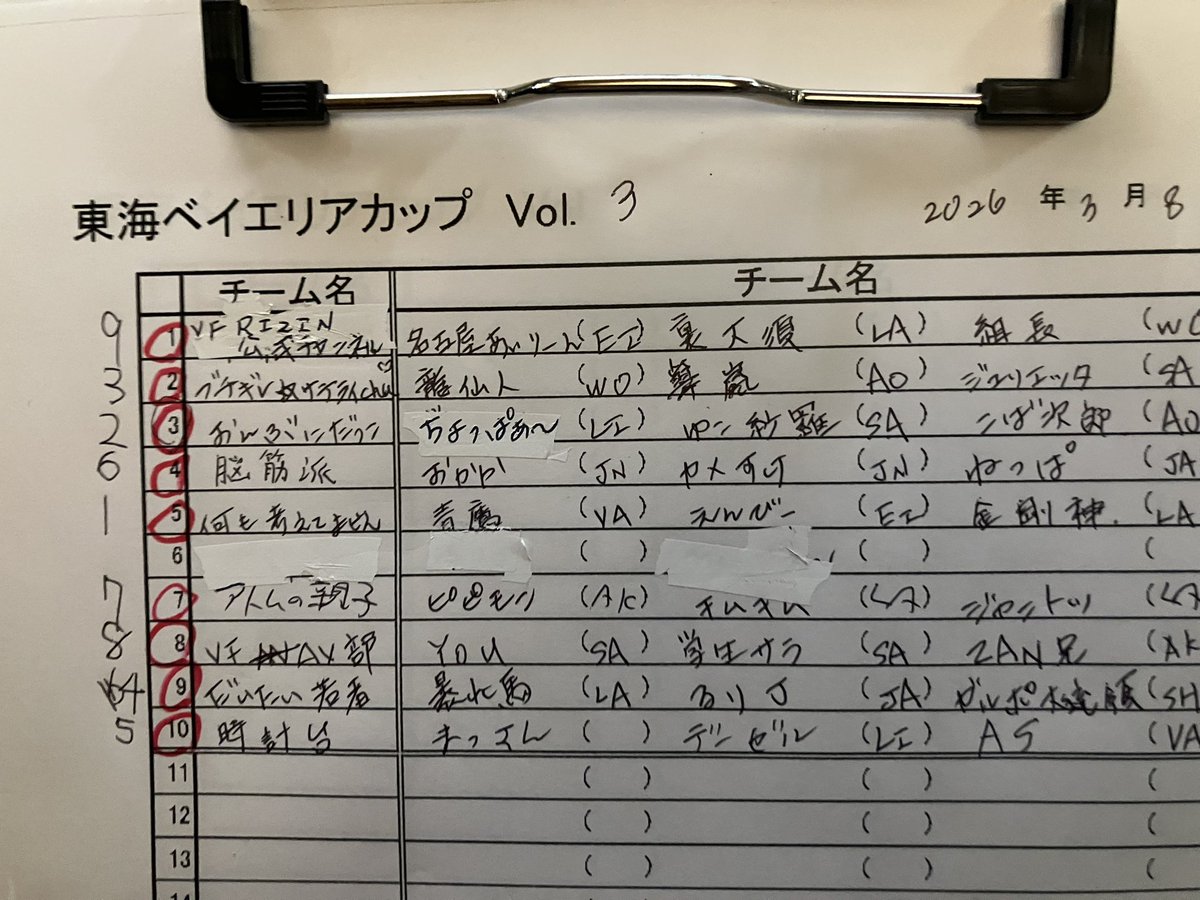 東海ベイエリアカップ Vol. 3 2026 年 3 月 8
チーム名 チーム名
9 1 VF RIZIN 公式チャンネル 名古屋あいりーん (EI) 裏大須 (LA) 組長 (WO
3 2 龍仙人 (WO) (AO) ジュリエッタ (SA
2 3 おんぶにだっこ ぢょっぱぁ〜 (LI) ゆこ紗羅 (SA) こば次郎 (AO
6 4 脳筋派 おかか (JN) ヤメすけ (JN) ねっぱ (JA
1 5 何も考えてません 青鷹 (VA) えんびー (EI) 金剛神 (LA
6 ( ) ( ) (
7 7 アトムの親子 ピピモン (AK) キムキム (LA) ジャントツ (LA
8 8 VF AV部 YOU (SA) 学生サラ (SA) ZAN兄 (AK
4 9 だいたい若者 暴れ馬 (LA) るりJ (JA) (SH
5 10 時計台 まっさん ( ) デンゼル (LI) AS (VA
11 ( ) ( ) (
12 ( ) ( ) (
13 ( ) ( ) (